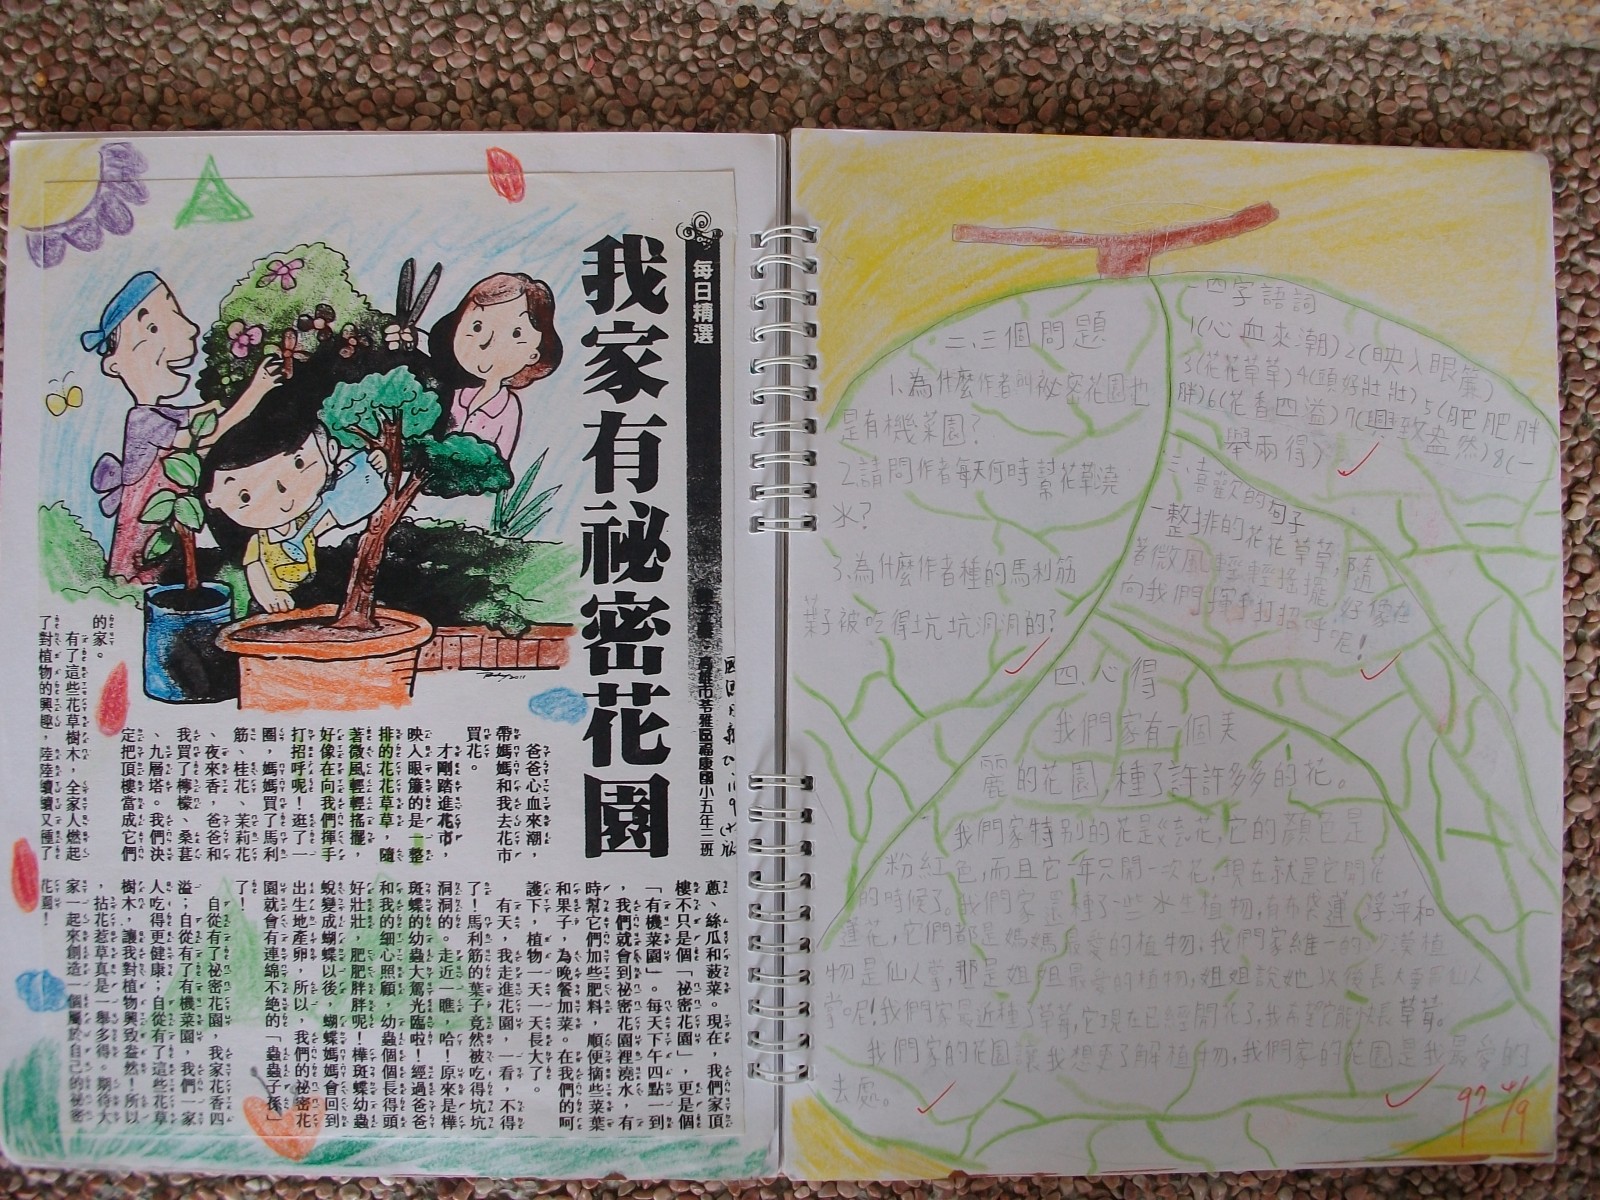 每日精選
我家有祕密花園
高雄市苓雅區福康國小五年二班
爸爸心血來潮，
帶媽媽和我去花市
買花。
才剛踏進花市，
映入眼簾的是一整
排的花花草草，隨
著微風輕輕搖擺，
好像在向我們揮手
打招呼呢！逛了一
圈，媽媽買了馬利
筋、桂花、茉莉花
、夜來香，爸爸和
我買了檸檬、桑葚
、九層塔。我們決
定把頂樓當成它們
的家。
有了這些花草樹木，全家人燃起
了對植物的興趣，陸陸續續又種了
蔥、絲瓜和菠菜。現在，我們家頂
樓不只是個「祕密花園」，更是個
「有機菜園」。每天下午四點一到
，我們就會到祕密花園裡澆水，有
時幫它們加些肥料，順便摘些菜葉
和果子，為晚餐加菜。在我們的呵
護下，植物一天一天長大了。
有天，我走進花園，一看，不得
了！馬利筋的葉子竟然被吃得坑坑
洞洞的。走近一瞧，哈！原來是樺
斑蝶的幼蟲大駕光臨啦！經過爸爸
和我的細心照顧，幼蟲個個長得頭
好壯壯，肥肥胖胖呢！樺斑蝶幼蟲
蛻變成蝴蝶以後，蝴蝶媽媽會回到
出生地產卵，所以，我們的祕密花
園就會有連綿不絕的「蟲蟲子孫」
了！
自從有了祕密花園，我家花香四
溢；自從有了有機菜園，我們一家
人吃得更健康；自從有了這些花草
樹木，讓我對植物興致盎然！所以
，拈花惹草真是一舉多得。期待大
家一起來創造一個屬於自己的祕密
花園！
一、四字語詞
1(心血來潮)2(映入眼簾)
3(花花草草)4(頭好壯壯)5(肥肥胖
胖)6(花香四溢)7(興致盎然)8(一
舉兩得)
二、三個問題
1.為什麼作者叫祕密花園也
是有機菜園？
2.請問作者每天何時幫花草澆
水？
3.為什麼作者種的馬利筋
葉子被吃得坑坑洞洞的？
三、喜歡的句子
一整排的花花草草，隨
著微風輕輕搖擺，好像在
向我們揮手打招呼呢！
四、心得
我們家有一個美
麗的花園，種了許許多多的花。
我們家特別的花是曇花，它的顏色是
粉紅色，而且它一年只開一次花，現在就是它開花
的時候了。我們家還種了一些水生植物，有布袋蓮、浮萍和
蓮花，它們都是媽媽最愛的植物。我們家維一的沙漠植
物是仙人掌，那是姐姐最愛的植物，姐姐說她以後長大要
掌呢！我們家最近種了草莓，它現在已經開花了，我希望它能快長草莓。
我們家的花園讓我想更了解植物，我們家的花園是我最愛的
去處。
92 4/9